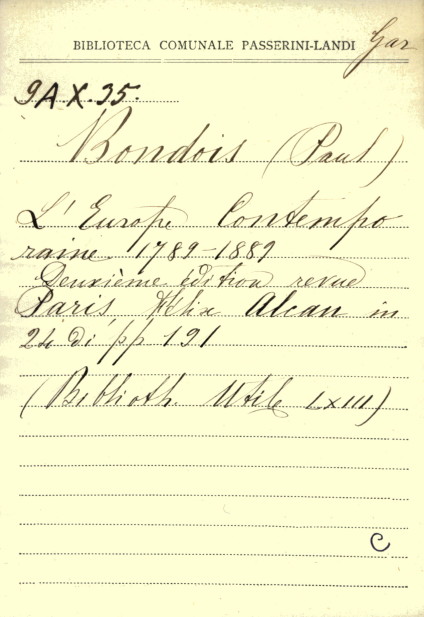 BIBLIOTECA COMUNALE PASSERINI-LANDI
Gar
9A X. 35.
Bondois (Paul)
L'Europe Contempo
raine 1789-1889
Deuxième édition revue
Paris Félix Alcan in
24 di pp 191
(Biblioth. Utile LXIII)
C